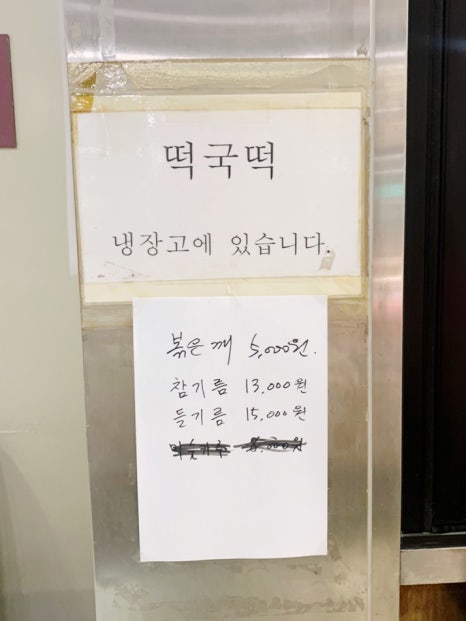 떡국떡
냉장고에 있습니다.
볶은깨 5,000원.
참기름 13,000원
들기름 15,000원